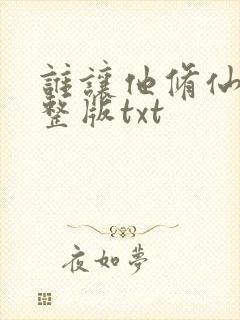 誰讓他脩仙
整版txt
夜如夢